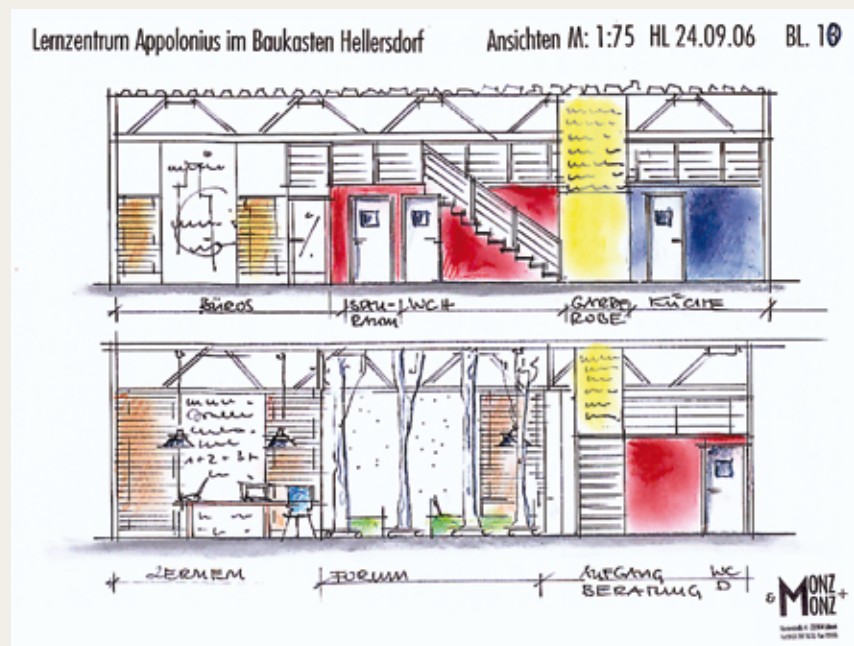 Lernzentrum Appolonius im Baukasten Hellersdorf Ansichten M: 1:75 HL 24.09.06 BL. 10
BÜROS WC H GARDE ROBE KÜCHE
RAUM
1+2=3+
LERNEN FORUM AUFGANG BERATUNG WC D
& MONZ + MONZ